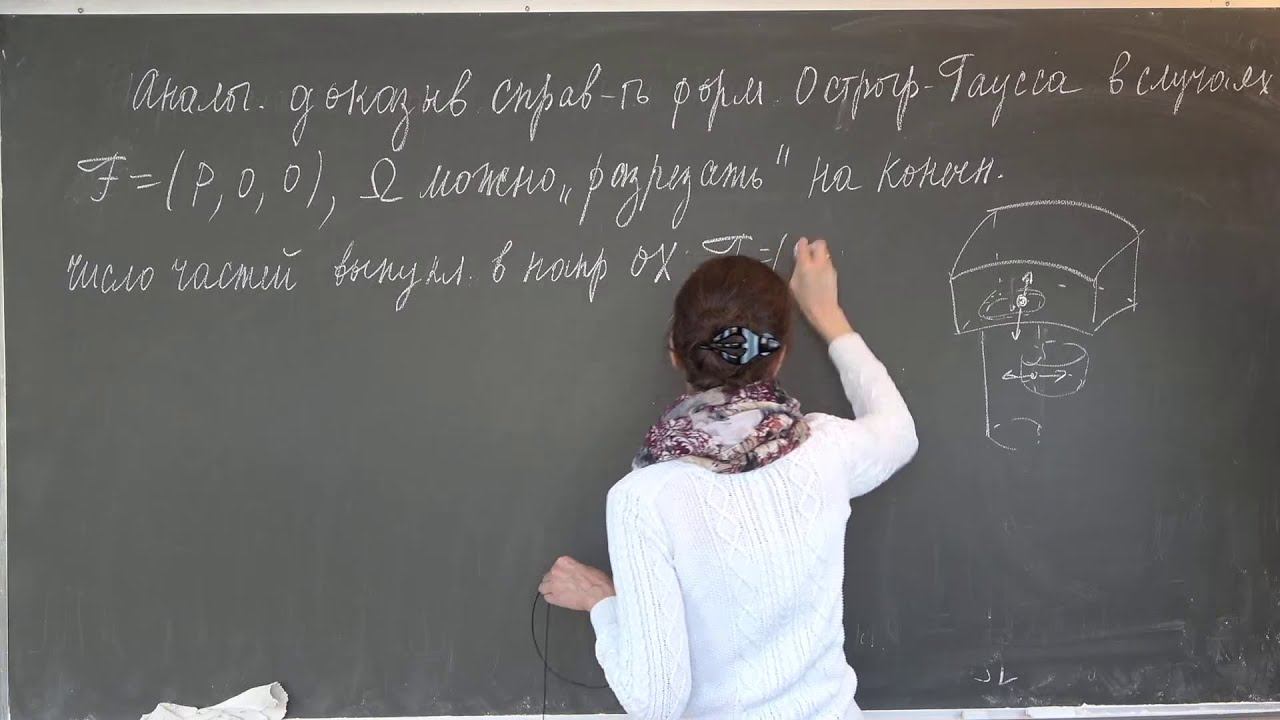 Аналог. доказыв. справ-ть форм. Острогр-Гаусса в случаях
F = (P, 0, 0), Ω можно „разрезать" на конечн.
число частей выпукл. в напр OX. F = (